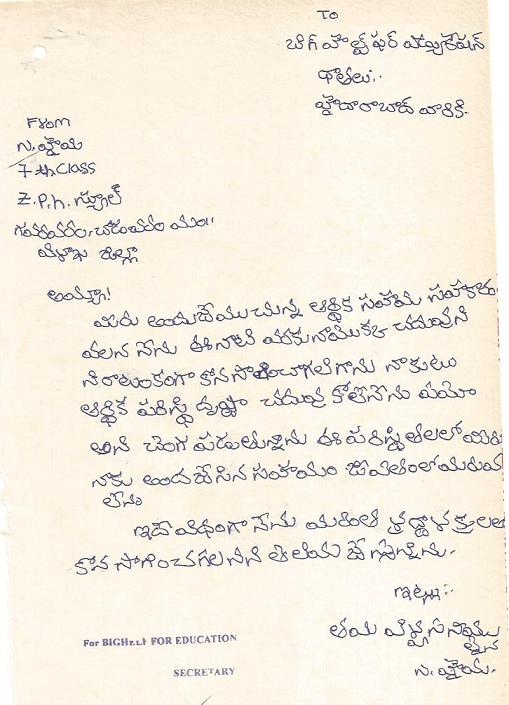 To
బిగ్ హెల్ప్ ఫర్ ఎడ్యుకేషన్
దాతలు:.
హైదారాబాద్ వారికి.
From
న.హైమ
7th class
Z.P.h. స్కూల్
గవరవరం, చోడవరం మం..
విశాఖ జిల్లా
అయ్యా!
మీరు అందజేయుచున్న ఆర్ధిక సహాయ సహకారం
వలన నేను ఈనాటి వరకు నాయొక్క చదువుని
నిరాటంకంగా కొనసాగించగలిగాను నా కుటు
ఆర్ధిక పరిస్థి దృష్ట్యా చదువు కోలేనేను
అని పడుతున్నాను ఈ పరిస్థితులలో మీరు
నాకు అందజేసిన సహాయం జీవితంలో మరువ
లేను
ఇదే విధంగా నేను మరింత శ్రద్ధాభక్తులతో
కొన సాగించగలనని తెలియ జేస్తున్నాను.
ఇట్లు:.
తమ విశ్వసనీయు
లైన
న.హైమ.
For BIGHELP FOR EDUCATION
SECRETARY